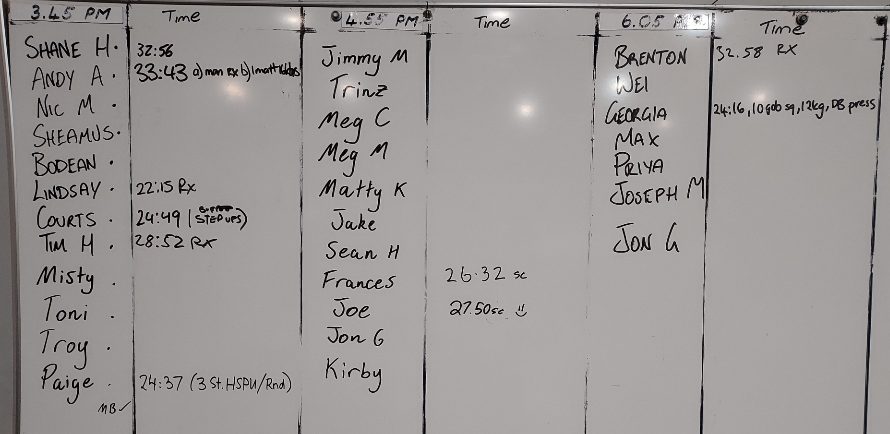 3.45 PM Time
SHANE H. 32:56
ANDY A. 33:43 a) man Rx b) 1 matt
NIC M.
SHEAMUS.
BODEAN.
LINDSAY. 22:15 Rx
COURTS. 24:49 (STEP UPS)
TIM H. 28:52 RX
Misty.
Toni.
Troy.
Paige. 24:37 (3 St. HSPU/Rnd)
MB✓
4.55 PM Time
Jimmy M
Trinz
Meg C
Meg M
Matty K
Jake
Sean H
Frances 26.32 sc
Joe 27.50sc
Jon G
Kirby
6.05 PM Time
BRENTON 32.58 RX
WEI
GEORGIA 24:16, 10 gob sq, 12kg, DB press
MAX
PRIYA
JOSEPH M
JON G